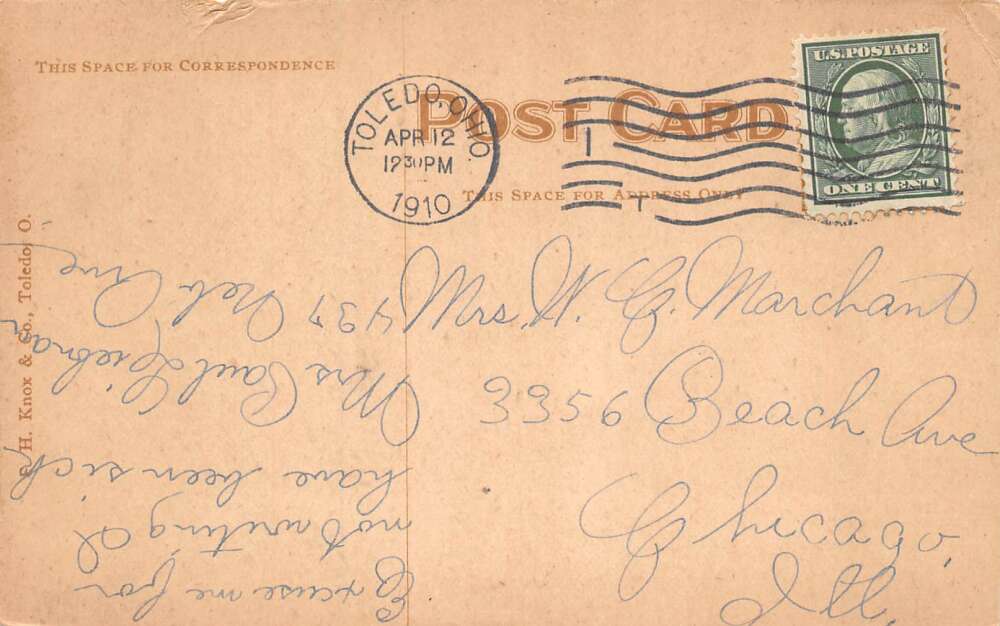 THIS SPACE FOR CORRESPONDENCE
POST CARD
THIS SPACE FOR ADDRESS ONLY
TOLEDO, OHIO.
APR 12
12 30 PM
1910
U.S. POSTAGE
ONE CENT
H. Knox & Co., Toledo, O.
Mrs. W. C. Marchant
3356 Beach Ave
Chicago,
Ill.
Excuse me for
not writing I
have been sick
Mrs Paul
437 Neb Ave